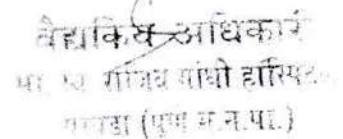 वैद्यकिय अधिकारी
मा. राजिव गांधी हॉस्पिटल
(पुणे म.न.पा.)